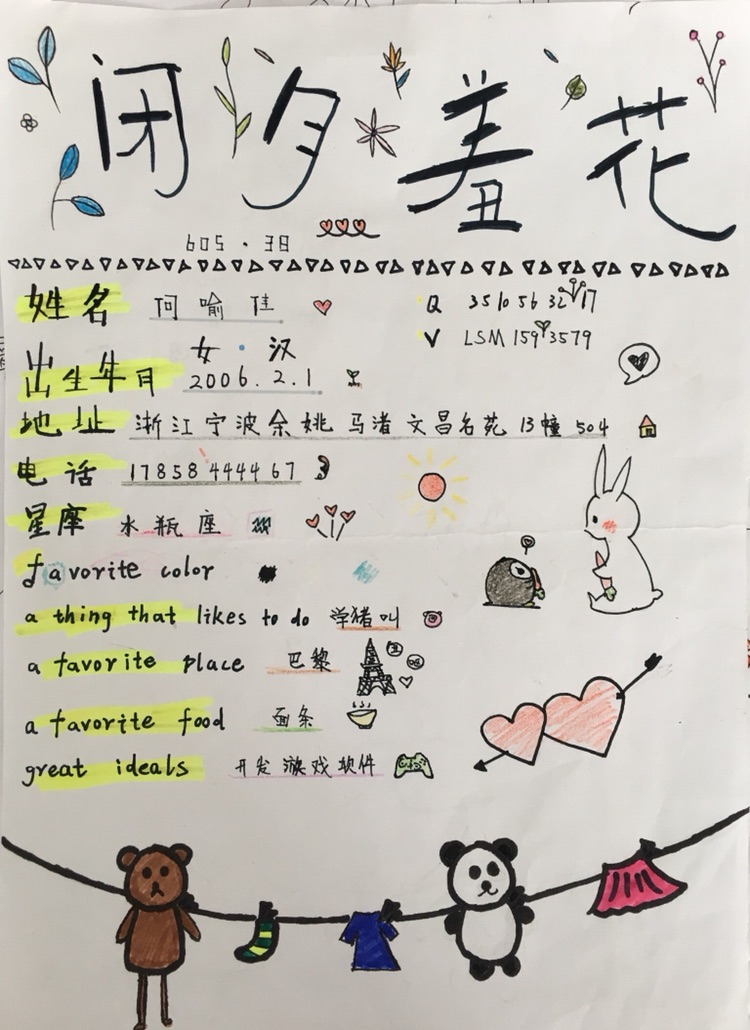 闭月羞花
605.38
姓名 何喻佳 Q 3510563217
女·汉 V LSM 1593579
出生年月 2006.2.1
地址 浙江宁波余姚马渚文昌名苑13幢504
电话 17858444467
星座 水瓶座
favorite color
a thing that likes to do 学猪叫
a favorite place 巴黎
a favorite food 面条
great ideals 开发游戏软件